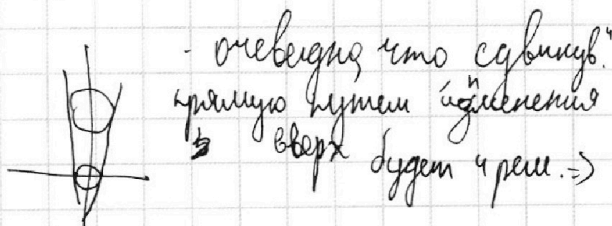 - очевидно, что сдвинув
прямую путем изменения
b вверх будет 4 реш. =>